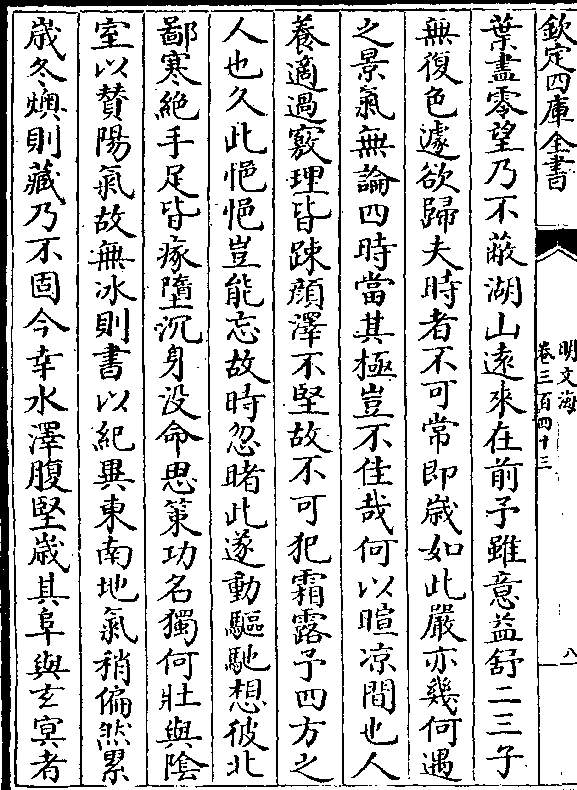 欽定四庫全書
明文海
卷三百四十三
八
葉盡零望乃不蔽湖山遠來在前予雖意益舒二三子
無復色遽欲歸夫時者不可常即歲如此嚴亦幾何遇
之景氣無論四時當其極豈不佳哉何以暄凉間也人
養適過竅理皆踈顔澤不堅故不可犯霜露予四方之
人也久此悒悒豈能忘故時忽睹此遂動驅馳想彼北
鄙寒絶手足皆瘃墮沉身没命思策功名獨何壯與陰
室以賛陽氣故無冰則書以紀異東南地氣稍偏然累
歲冬燠則藏乃不固今幸水澤腹堅歲其阜與玄冥者